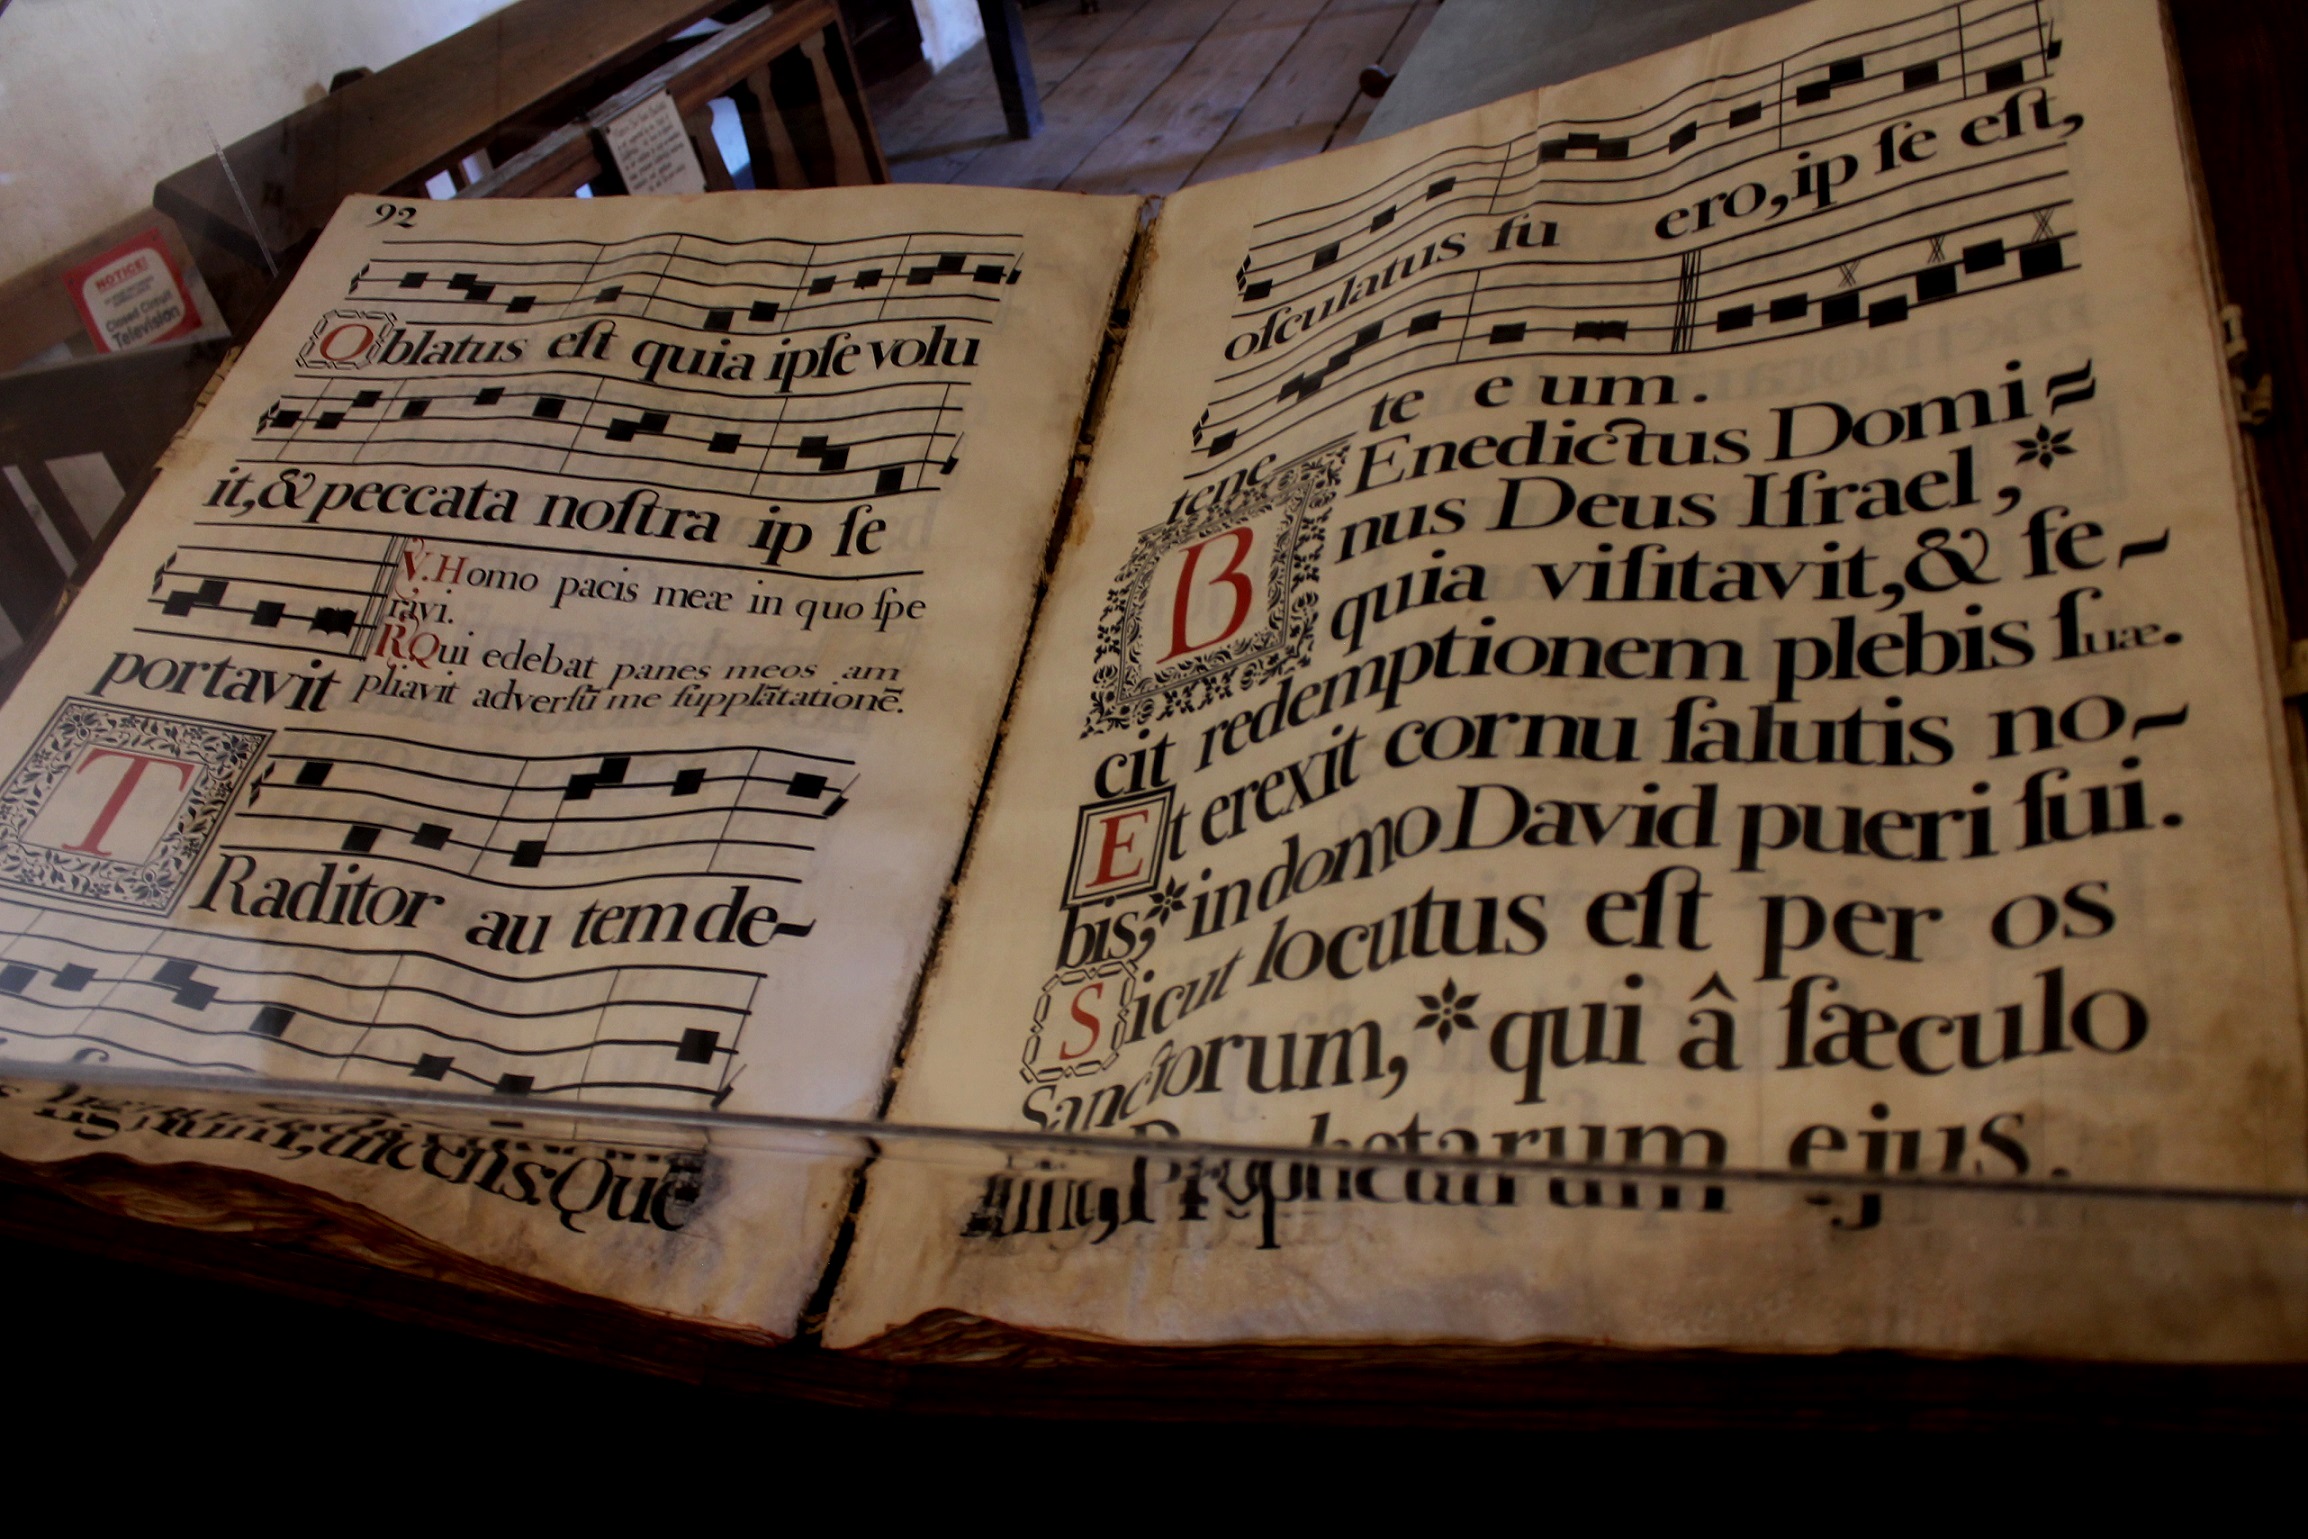 92
Oblatus eſt quia ipſe volu
it, & peccata noſtra ip ſe
V. Homo pacis meæ in quo ſpe
ravi.
R. Qui edebat panes meos am
portavit pliavit adverſū me ſupplātationē.
TRaditor au tem de-
dicens Que
oſculatus fu ero, ip ſe eſt,
tene te e um.
BEnedictus Domi-
nus Deus Iſrael, *
quia viſitavit, & fe-
cit redemptionem plebis ſuæ.
Et erexit cornu ſalutis no-
bis, * in domo David pueri ſui.
Sicut locutus eſt per os
Sanctorum, * qui â ſæculo
Prophetarum ejus.
NOTICE!
Closed Circuit
Television